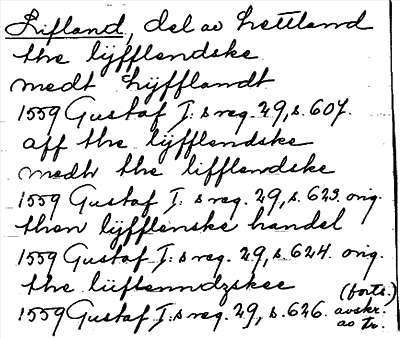 Lifland, del av Lettland
the lÿfflendske
medt Lÿfflandt
1559 Gustaf I:s reg. 29, s. 607.
aff the lÿfflendske
medh the lifflendske
1559 Gustaf I:s reg. 29, s. 623. orig.
then lÿfflenske handel
1559 Gustaf I:s reg. 29, s. 624. orig.
the liiflenndzskee (forts.)
1559 Gustaf I:s reg. 29, s. 626. avskr.
av tr.